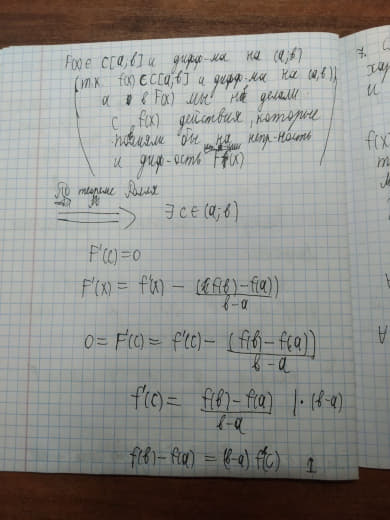 F(x) ∈ C[a;b] и дифф-ма на (a;b)
(т.к. f(x) ∈ C[a;b] и дифф-ма на (a;b),
а в F(x) мы не делали
с f(x) действия, которые
повлияли бы на непр-ность
и диф-ость F(x))
По теореме Ролля
⟹ ∃ c ∈ (a;b)
F'(c) = 0
F'(x) = f'(x) - (f(b) - f(a))/(b-a)
0 = F'(c) = f'(c) - (f(b) - f(a))/(b-a)
f'(c) = (f(b) - f(a))/(b-a) | · (b-a)
f(b) - f(a) = (b-a) f'(c)
7.